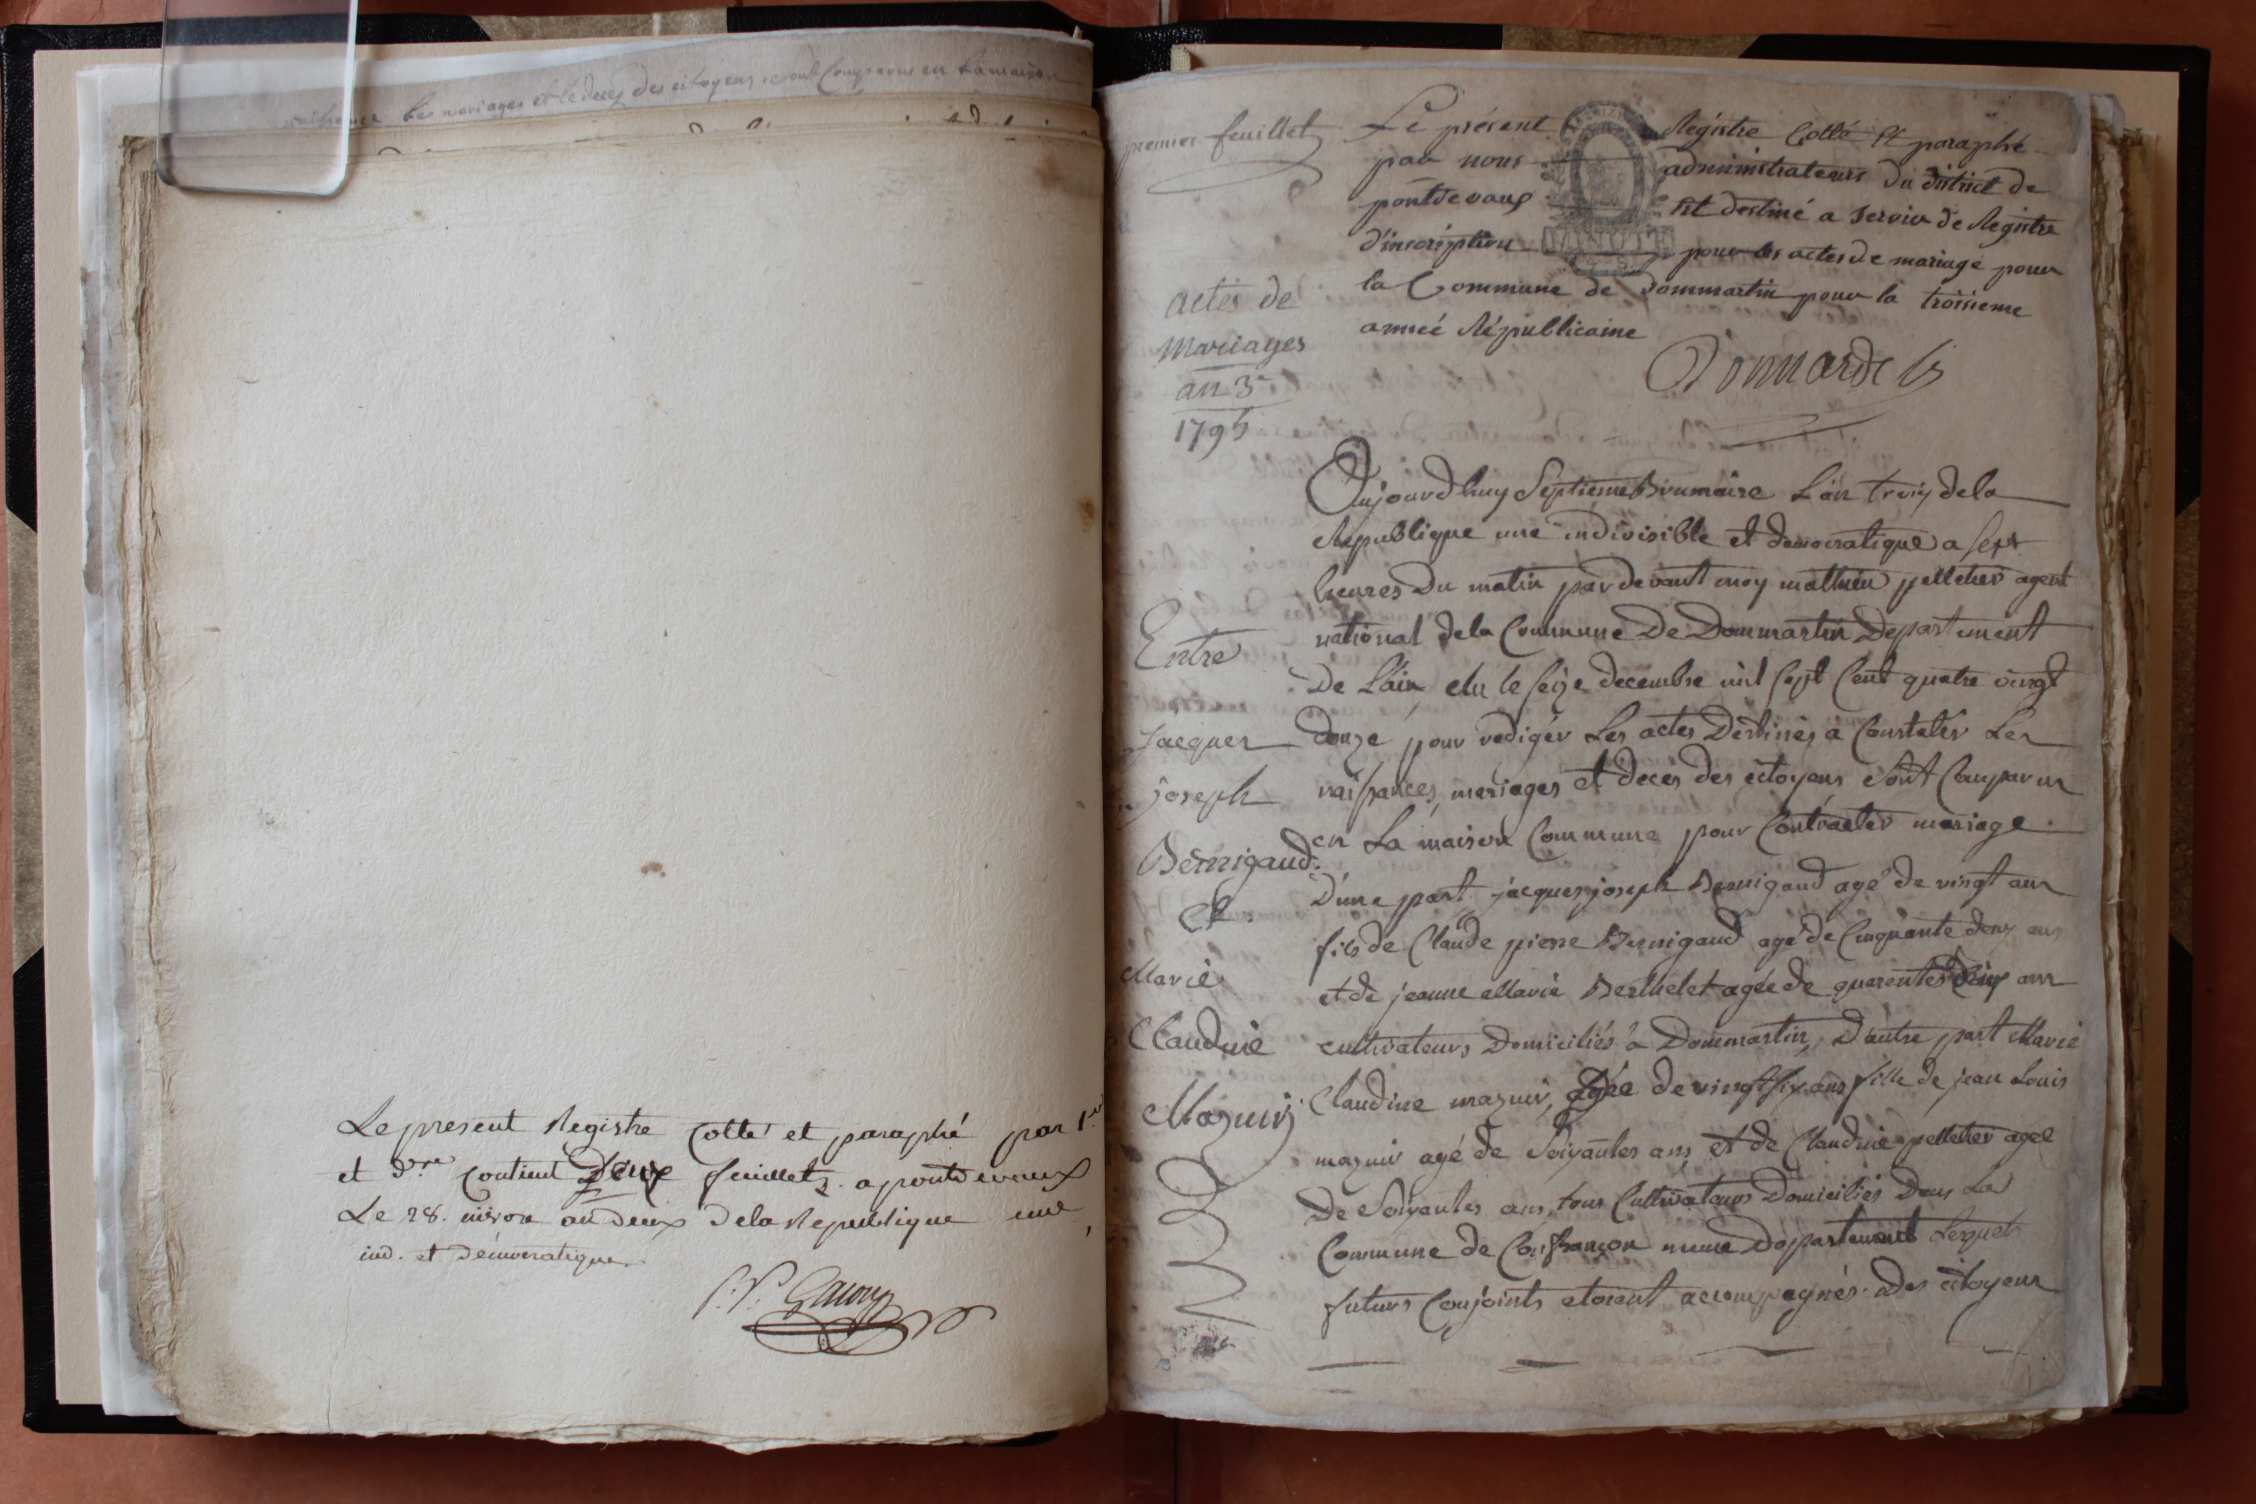 les mariages et le deces des citoyens sont Comparus en la maison
Le present Registre Cotté et paraphé par 1.er
et d.er Contient Deux feuillets. a pontdevaux
Le 28. nivose an deux de la Republique une
ind. et democratique.
premier feuillet
Le présent Régistre Cotté Et paraphé
par nous administrateurs du district de
pontdevaux Est destiné a servir de Registre
d'inscription pour les actes de mariage pour
la Commune de dommartin pour la troisieme
année Républicaine
MINUTE
actes de
Mariages
an 3e
1795
Aujourdhuy Septieme Brumaire L'an trois de la
Republique une indivisible et democratique a sept
heures du matin par devant moy mathieu pelletier agent
national de la Commune De Dommartin Departement
De L'ain elu le seize decembre mil sept Cent quatre vingt
douze pour rediger Les actes Destinés à Constater Les
naissances, mariages et decès des citoyens sont Comparus
en La maison Commune pour Contracter mariage.
D'une part jacques joseph Bernigaud agé de vingt ans
fils de Claude pierre Bernigaud agé de Cinquante deux ans
et de jeanne Marie Berthelet agée de quarentes deux ans
cultivateurs Domiciliés à Dommartin, D'autre part Marie
Claudine mazuir, agée de vingt six ans fille de jean Louis
mazuir agé de Soixantes ans et de Claudine pelletier agée
De Soixantes ans, tous Cultivateurs Domiciliés Dans La
Commune de Confrançon meme Departement Lesquels
futurs Conjoints etoient accompagnés Des citoyens
Entre
Jacques
joseph
Bernigaud
Et
Marie
Claudine
Mazuir